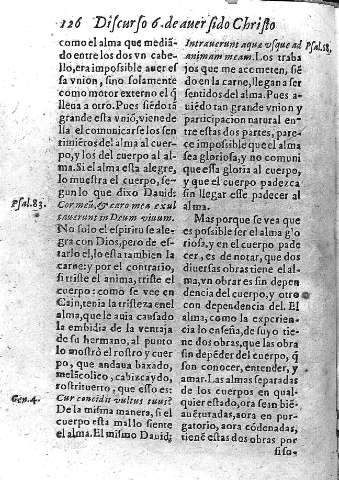 126 Discurso 6. de auer sido Christo
como el alma que mediã-
do entre los dos vn cabe-
llo, era impossible auer es
sa vnion, sino solamente
como motor externo el q̃
lleua a otro. Pues siẽdo tã
grande esta vniõ, viene de
alli el comunicarse los sen
timiẽtos del alma al cuer-
po, y los del cuerpo al al-
ma. Si el alma esta alegre,
lo muestra el cuerpo, se-
gun lo que dixo Dauid:
Psal. 83.
Cor meũ, & caro mea exul
tauerunt in Deum viuum.
No solo el espiritu se ale-
gra con Dios, pero de es-
tarlo el, lo esta tambien la
carne: y por el contrario,
si triste el anima, triste el
cuerpo: como se vee en
Cain, tenia la tristeza en el
alma, que le auia causado
la embidia de la ventaja
de su hermano, al punto
lo mostrò el rostro y cuer
po, que andaua baxado,
melãcolico, cabizcaydo,
rostrituerto, que esso es:
Gen. 4.
Cur concidit vultus tuus?
De la misma manera, si el
cuerpo esta mallo siente
el alma. El mismo Dauid:
Intrauerunt aquæ vsque ad
Psal. 68.
animam meam. Los traba
jos que me acometen, siẽ-
do en la carne, llegan a ser
sentidos del alma. Pues a-
uiẽdo tan grande vnion y
participacion natural en-
tre estas dos partes, pare-
ce impossible que el alma
sea gloriosa, y no comuni
que essa gloria al cuerpo,
y que el cuerpo padezca
sin llegar esse padecer al
alma.
Mas porque se vea que
es possible ser el alma glo
riosa, y en el cuerpo pade
cer, es de notar, que dos
diuersas obras tiene el al-
ma, vn obrar es sin depen
dencia del cuerpo, y otro
con dependencia del. El
alma, como la experien-
cia lo enseña, de suyo tie-
ne dos obras, que las obra
sin depẽder del cuerpo, q̃
son conocer, entender, y
amar. Las almas separadas
de los cuerpos en qual-
quier estado, ora sean biẽ-
auẽturadas, aora en pur-
gatorio, aora cõdenadas,
tienẽ estas dos obras por
si so-